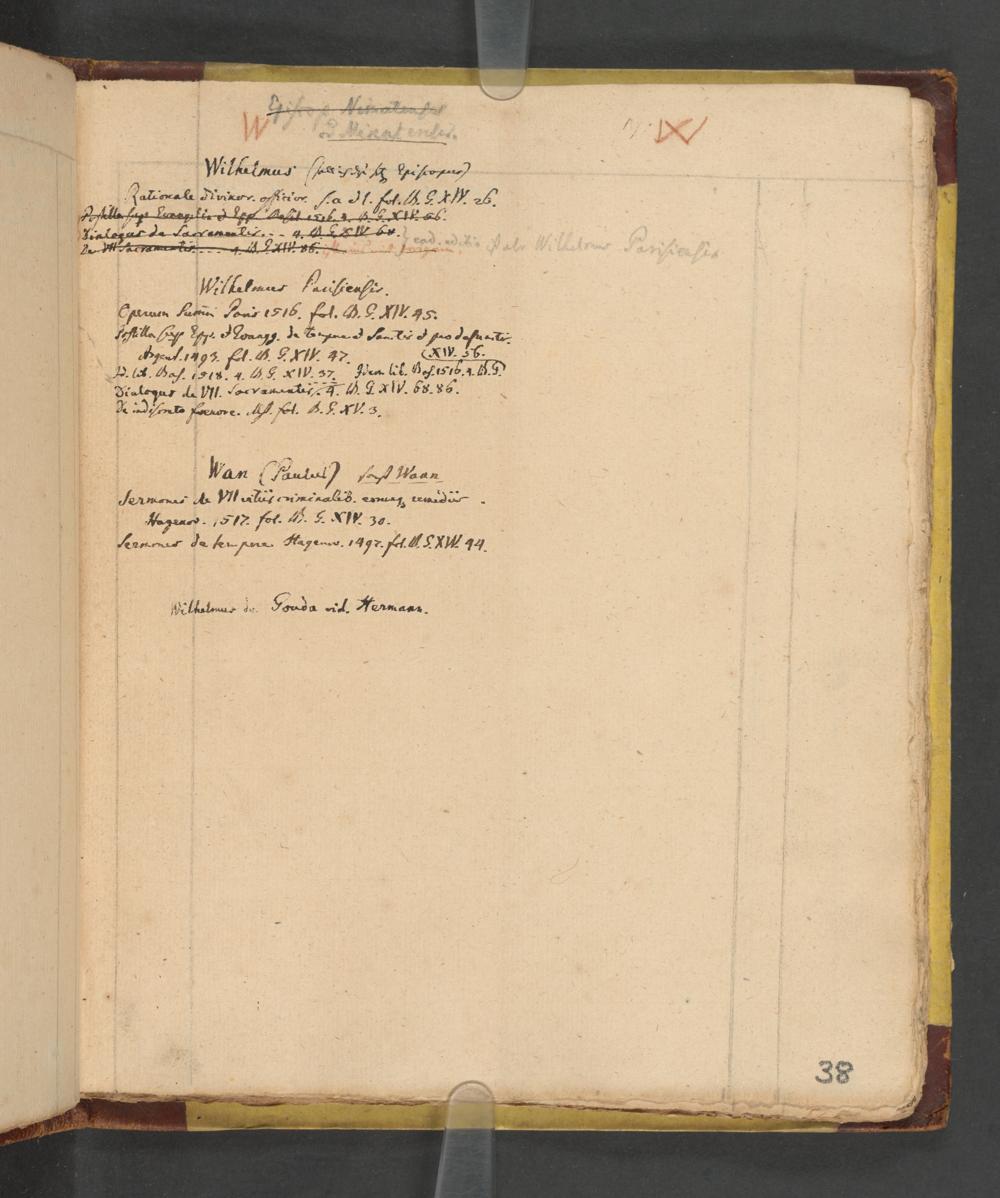 W
Episcop Nimatensis
od Mimatensis.
Wilhelmus Episcopus)
Rationale divinor. officior. s. a. et l. fol. B. G. XIV. 26.
Postilla sup. Evangelia et Epp. Basil 1516. 4. B. G. XIV. 56.
Dialogus de Sacramentis... 4. B. G. XIV 68.
De VII Sacramentis.... 4. B. G. XIV. 86.
Wilhelmus Parisiensis
Wilhelmus Parisiensis.
Operum Paris 1516. fol. B. G. XIV. 45.
Postilla sup. Epp. et Evangg. de tempore et Sanctis et pro defunctis.
Argent. 1493. fol. B. G. XIV. 47. XIV. 56.
Id. lib. Bas. 1518. 4. B. G. XIV. 37. Idem lib. Bas. 1516. 4. B. G.
Dialogus de VII. Sacramentis. 4. B. G. XIV. 68. 86.
De fol. B. G. XV. 3.
Wan (Paulus) sonst Waan
Sermones de VII vitiis criminalib. eorumq remediis.
Hagenov. 1517. fol. B. G. XIV. 30.
Sermones de tempore. Hagenov. 1497. fol. B. G. XIV. 44.
Wilhelmus de Gouda vid. Hermann.
38